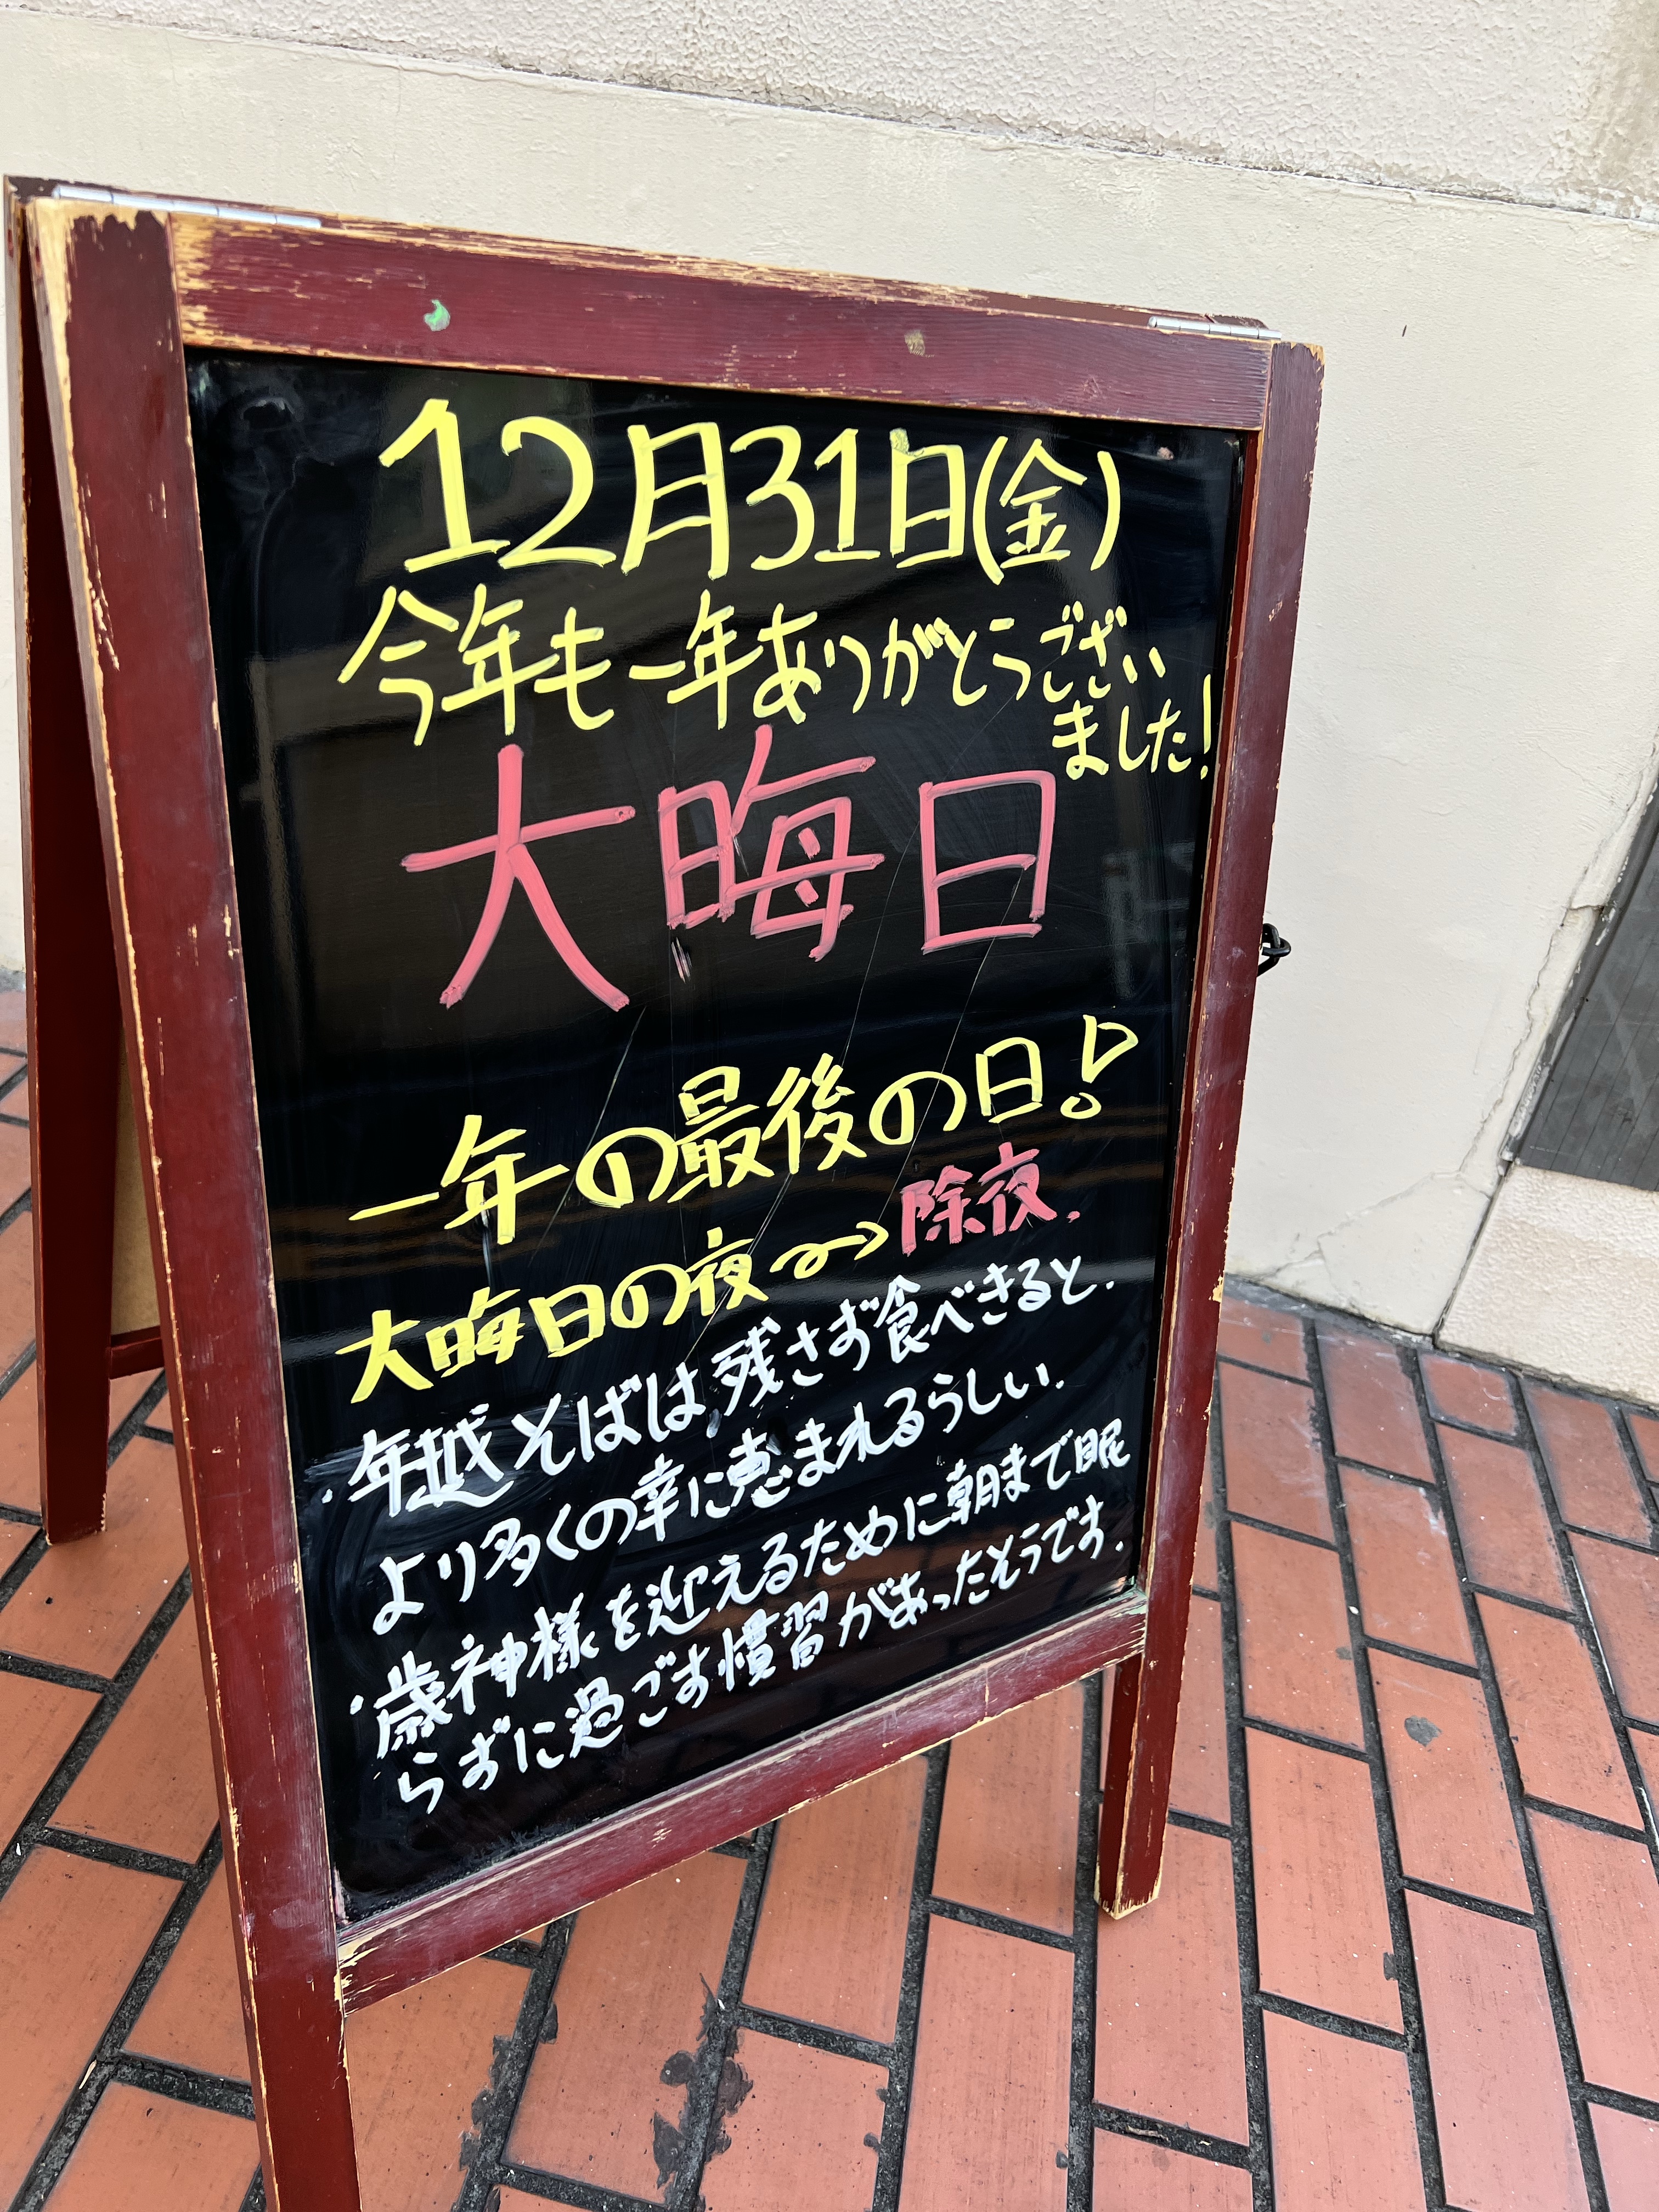 12月31日(金)
今年も一年ありがとうござい
ました!
大晦日
一年の最後の日!
大晦日の夜→除夜.
・年越そばは残さず食べきると.
より多くの幸に恵まれるらしい.
・歳神様を迎えるために朝まで眠
らずに過ごす慣習があったそうです.